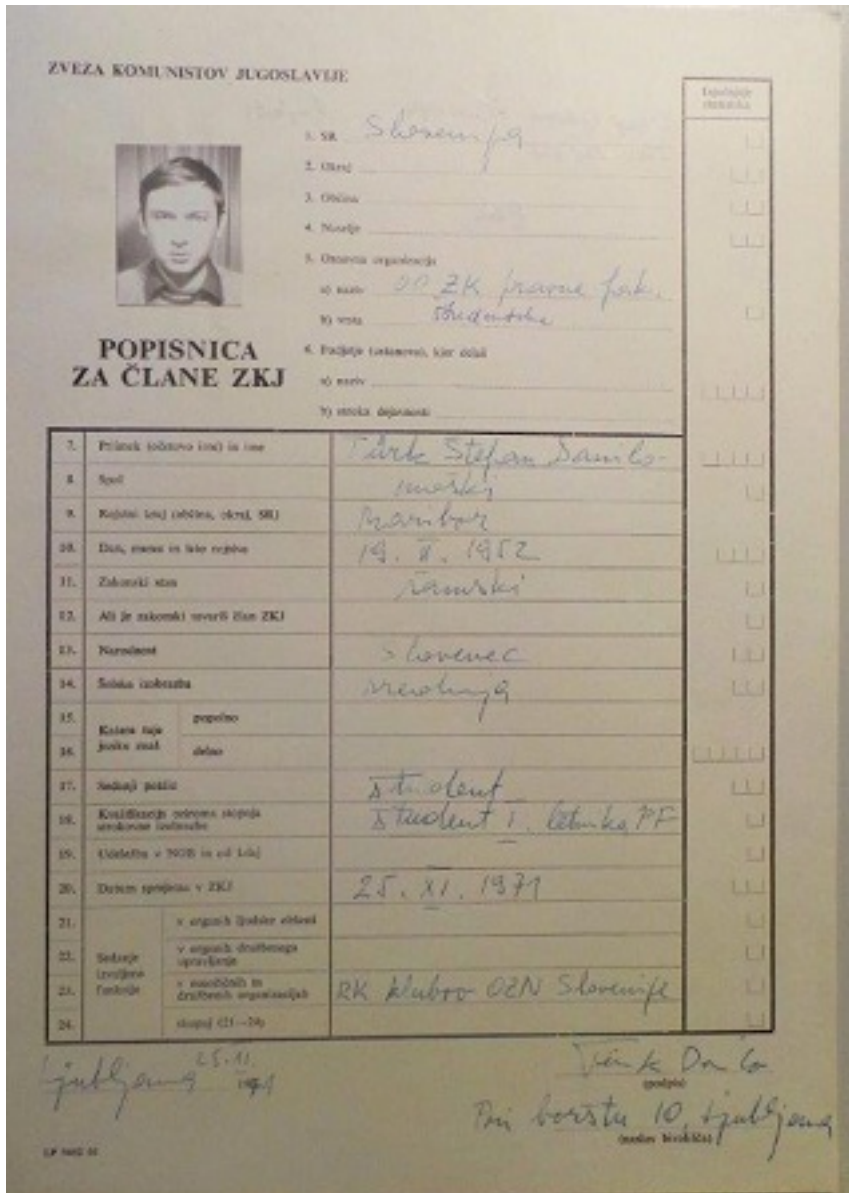 ZVEZA KOMUNISTOV JUGOSLAVIJE
1. SR Slovenija
2. Okraj
3. Občina
4. Naselje
5. Osnovna organizacija
a) naziv OO ZK pravne fak.
b) vrsta študentska
6. Podjetje (ustanova), kjer delaš
a) naziv
b) stroka dejavnosti
POPISNICA
ZA ČLANE ZKJ
7. Priimek (očetovo ime) in ime Türk Štefan Danilo
8. Spol moški
9. Rojstni kraj (občina, okraj, SR) Maribor
10. Dan, mesec in leto rojstva 19. II. 1952
11. Zakonski stan samski
12. Ali je zakonski tovariš član ZKJ
13. Narodnost Slovenec
14. Šolska izobrazba srednja
15. Katere tuje jezike znaš popolno
16. delno
17. Sedanji poklic študent
18. Kvalifikacija oziroma stopnja strokovne izobrazbe študent I. letnika PF
19. Udeležba v NOB in od kdaj
20. Datum sprejema v ZKJ 25. XI. 1971
21. Sedanje izvoljene funkcije v organih ljudske oblasti
22. v organih družbenega upravljanja
23. v množičnih in družbenih organizacijah RK klubov OZN Slovenije
24. skupaj (21—24)
Ljubljana 25.11. 1971
Türk Danilo
(podpis)
Pri borštu 10, Ljubljana
(naslov bivališča)